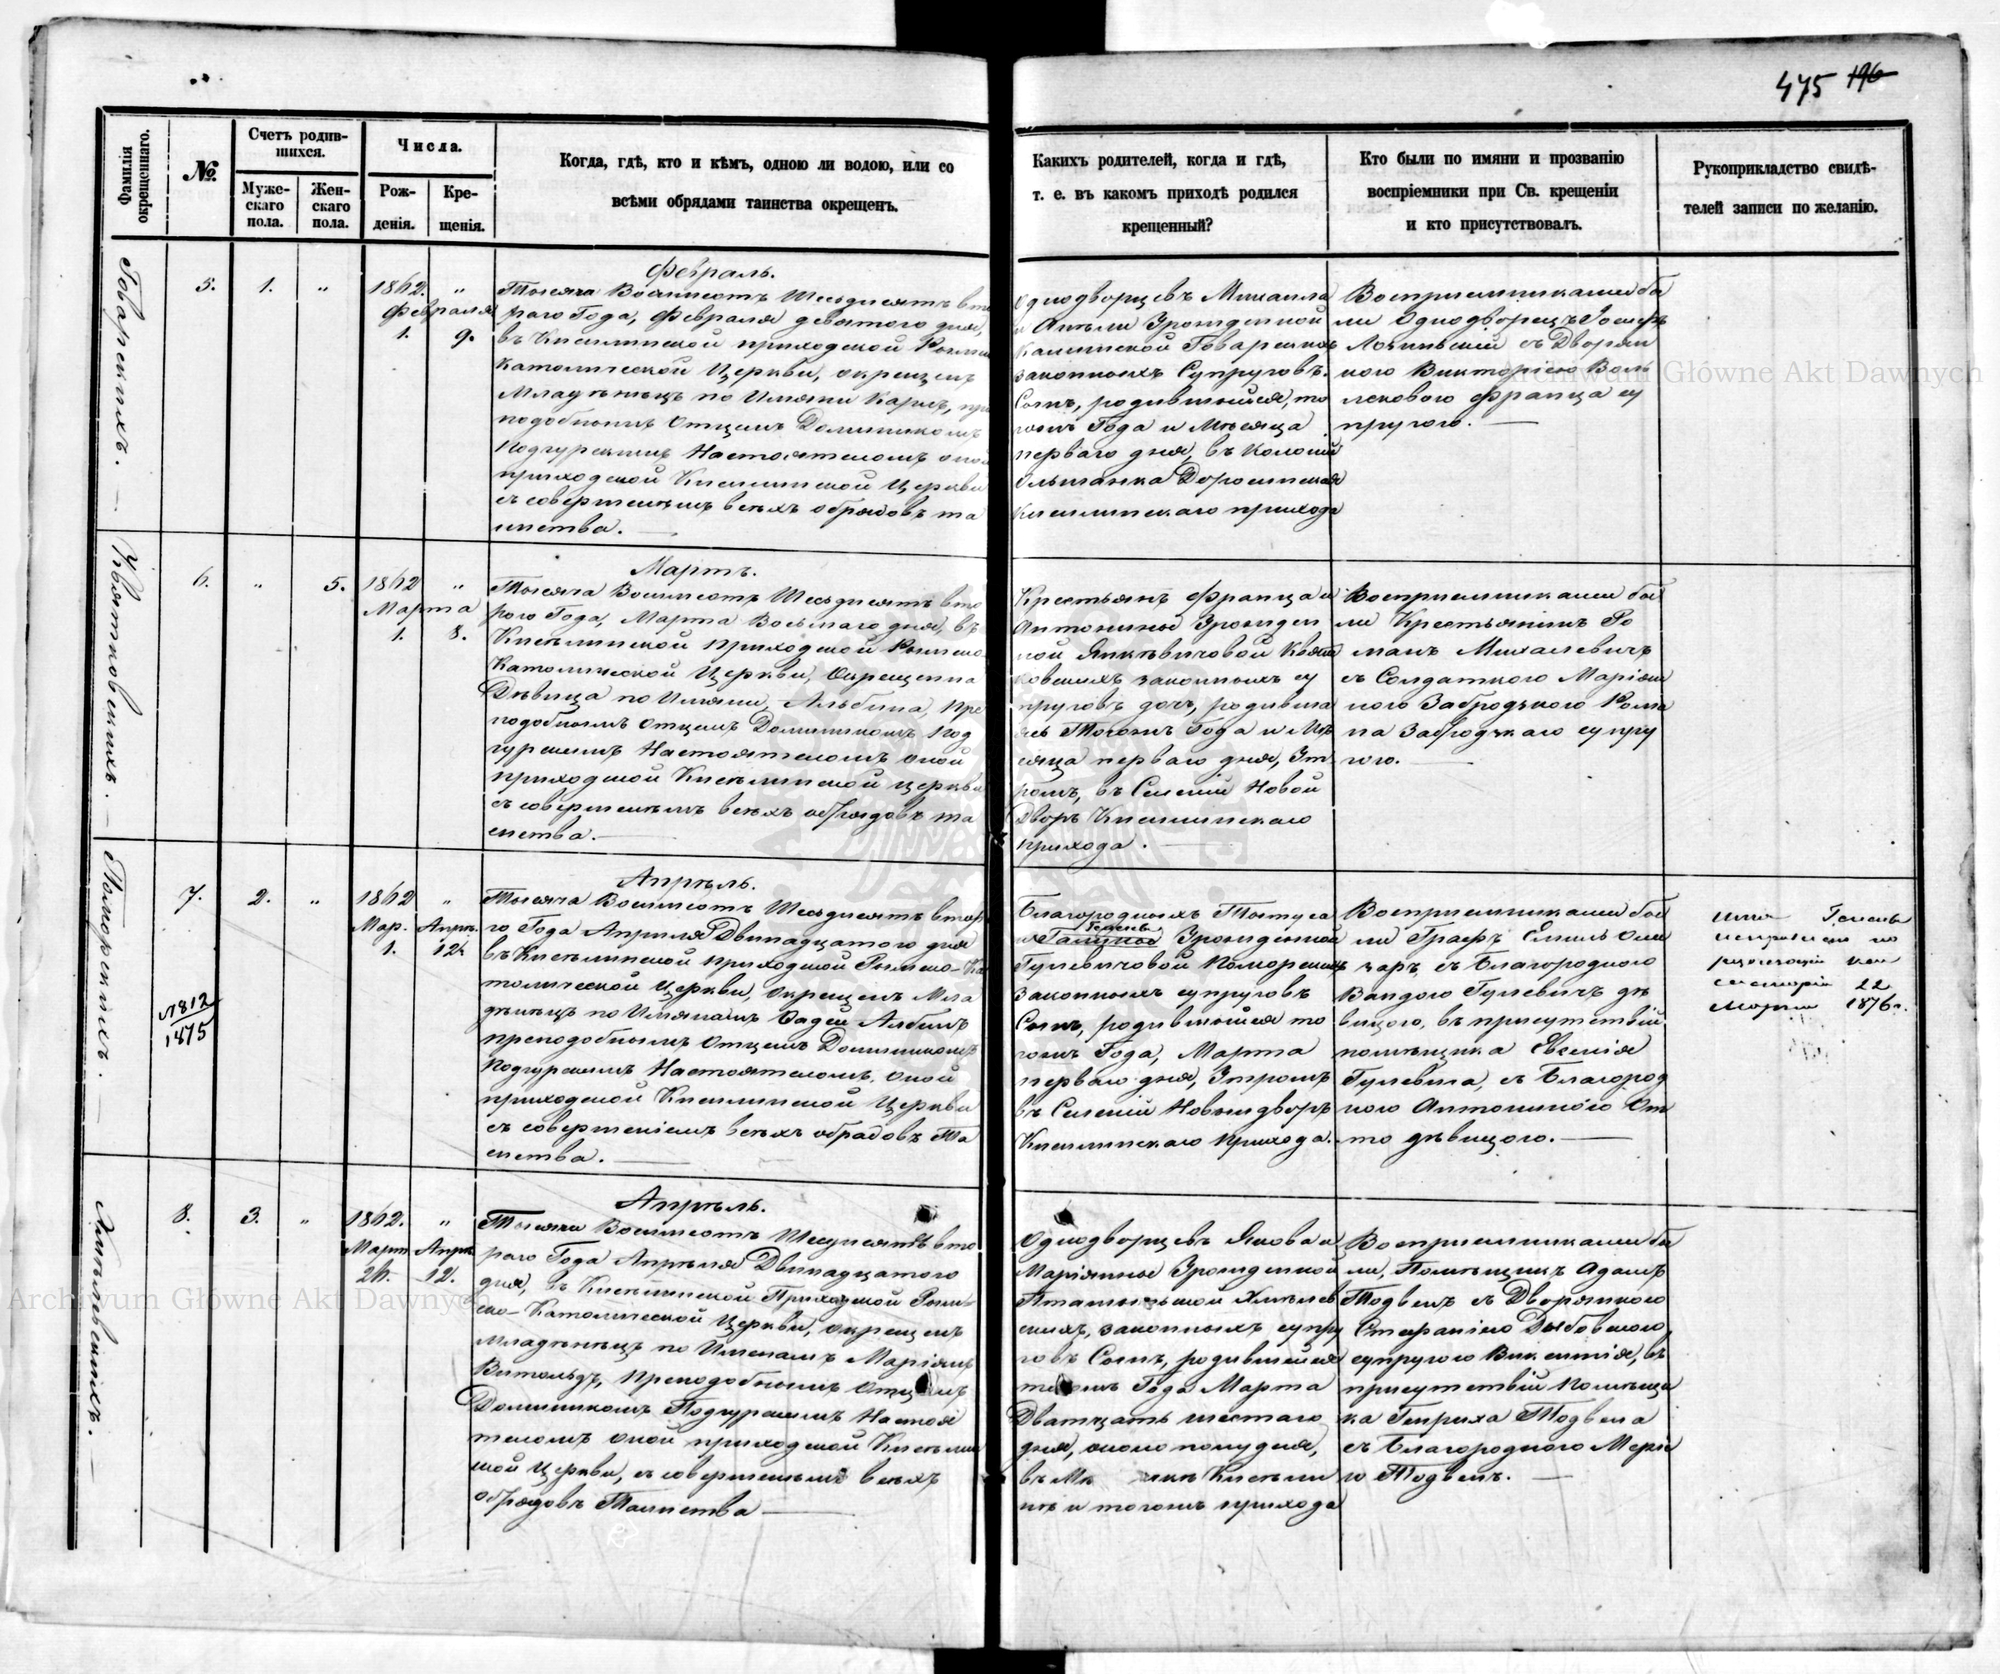 475 196
Фамилія окрещеннаго.
№.
Счетъ родив-
шихся.
Муже-
скаго
пола.
Жен-
скаго
пола.
Числа.
Рож-
денія.
Кре-
щенія.
Когда, гдѣ, кто и кѣмъ, одною ли водою, или со
всѣми обрядами таинства окрещенъ.
Какихъ родителей, когда и гдѣ,
т. е. въ какомъ приходѣ родился
крещенный?
Кто были по имяни и прозванію
воспріемники при Св. крещеніи
и кто присутствовалъ.
Рукоприкладство свидѣ-
телей записи по желанію.
Товарскихъ.
5.
1.
"
1862.
"
Февраля
1.
9.
Февраль.
Тысяча Восемсотъ Шесьдисятъ вто
раго Года, Февраля девятого дня,
въ Киселинской приходской Римско
Католической Церкви, окрещенъ
Младѣнецъ по Имяни Карлъ, пре
подобнымъ Отцемъ Доминикомъ
Подгурскимъ Настоятелемъ оной
приходской Киселинской Церкви
съ совершенимъ всѣхъ обрядовъ та
инства.
Однодворцевъ Михаила
и Анѣли Урожденной
Калинской Товарскихъ
законныхъ Супруговъ.
Сынъ, родившыйся, то
гожъ Года и Мѣсяца
перваго дня, въ Колоніи
Ольшанка Доросинская
Киселинскаго прихода
Восприемниками бы
ли Однодворецъ Іосифъ
съ Дворян
кою Викторією Воль
сковою Франца су
пругою.
Квятковскихъ.
6.
"
5.
1862
"
Марта
1.
8.
Мартъ.
Тысяча Восемсотъ Шесьдисятъ вто
рого Года, Марта Восьмаго дня, въ
Кисѣлинской приходской Римско
Католической Церкви, Окрещенна
Дѣвица по Имяни, Альбина, Пре
подобнымъ Отцемъ Доминикомъ Под
гурскимъ Настоятелемъ оной
приходской Кисѣлинской церкви
съ совершенимъ всѣхъ обрядовъ та
инства.
Крестьянъ Франца и
Антонины Урожден
ной Янкѣвичовой Квят
ковскихъ законныхъ су
пруговъ дочь, родивша
ясь Тогожъ Года и Мѣ
сяца перваго дня, Ут
ромъ, въ Селеніи Новой
Дворъ Киселинскаго
прихода.
Восприемниками бы
ли Крестьянинъ Ро
манъ Михалевичъ
съ Солдаткою Маріян
ною Забродзкою Рома
на Забродзкаго супру
гою.
Поморскихъ.
7.
2.
"
1862
"
Мар.
Апрѣ.
1.
12.
№812
1875
Апрѣль.
Тысяча Восемсотъ Шесьдисятъ втор
го Года Апрѣля Двинадцатого дня
въ Кисѣлинской приходской Римско-Ка
толической Церкви, Окрещенъ Мла
дѣнецъ по Имянамъ Фадей-Албинъ
преподобнымъ Отцемъ Доминикомъ
Подгурскимъ Настоятелемъ, оной
приходской Киселинской Церкви
съ совершеніемъ всѣхъ обрадовъ Та
инства.
Благородныхъ Тытуса
и Урожденной
Гулевичовой Поморскихъ
Законныхъ супруговъ
Сынъ, родившыйся то
гожъ Года, Марта
перваго дня, Утромъ
въ Селеніи Новымдворѣ
Киселинскаго прихода.
Восприемниками бы
ли Графъ Емиль Оли
заръ, съ Благородною
Вандою Гулевичъ дѣ
вицою, въ присутствіи
помѣщика Евгенія
Гулевича, съ Благород
ною Антониною От
то дѣвицою.
исправлено по
22
Марта 1876г.
Хмѣлевскихъ.
8.
3.
"
1862.
"
Март
Апрѣ.
26.
12.
Апрѣль.
Тысяча Восемсотъ Шесдисятъ вто
рого Года Апрѣля Двинадцатого
дня, въ Кисѣлинской Приходской Рим
ско-Католической Церкви, окрещенъ
младѣнецъ по Именамъ Маріянъ
Витольдъ, Преподобнымъ Отцемъ
Доминикомъ Подгурскимъ Настоя
телемъ оной приходской Кисѣлин
ской Церкви, съ совершенымъ всѣхъ
обрядовъ Таинства
Однодворцевъ Якова и
Маріянны Урожденной
Хмѣлев
скихъ, законныхъ супру
говъ Сынъ, родившыйся
тогожъ Года Марта
Двадцать шестаго
дня, около полудня,
въ Кисѣли
нѣ и тогожъ прихода
Восприемниками бы
ли, Помѣщикъ Адамъ
Тодвенъ съ Дворянкою
Стефанією Дыбовскою,
супругою Викентія, въ
присутствіи Помѣщи
ка Генриха Тодвена
съ Благородною Марі
ю Тодвенъ.
Archiwum Główne Akt Dawnych
Archiwum Główne Akt Dawnych